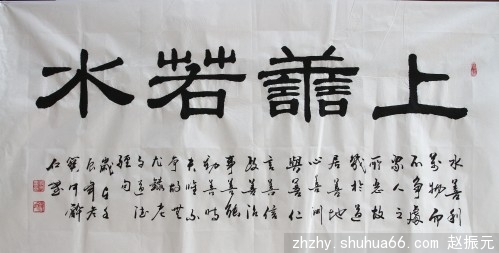 上善若水
水善利
萬物而
不争處
衆人之
所惡故
幾於道
居善地
心善渊
與善仁
言善信
政善治
事善能
動善時
夫唯不
争故無
尤錄老
子道德
經句
zhzhy.shuhua66.com 赵振元